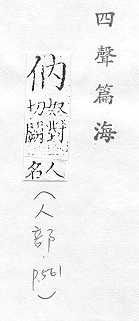 四聲篇海
㐻
奴對
切闕
人
名
(人部.
P561)